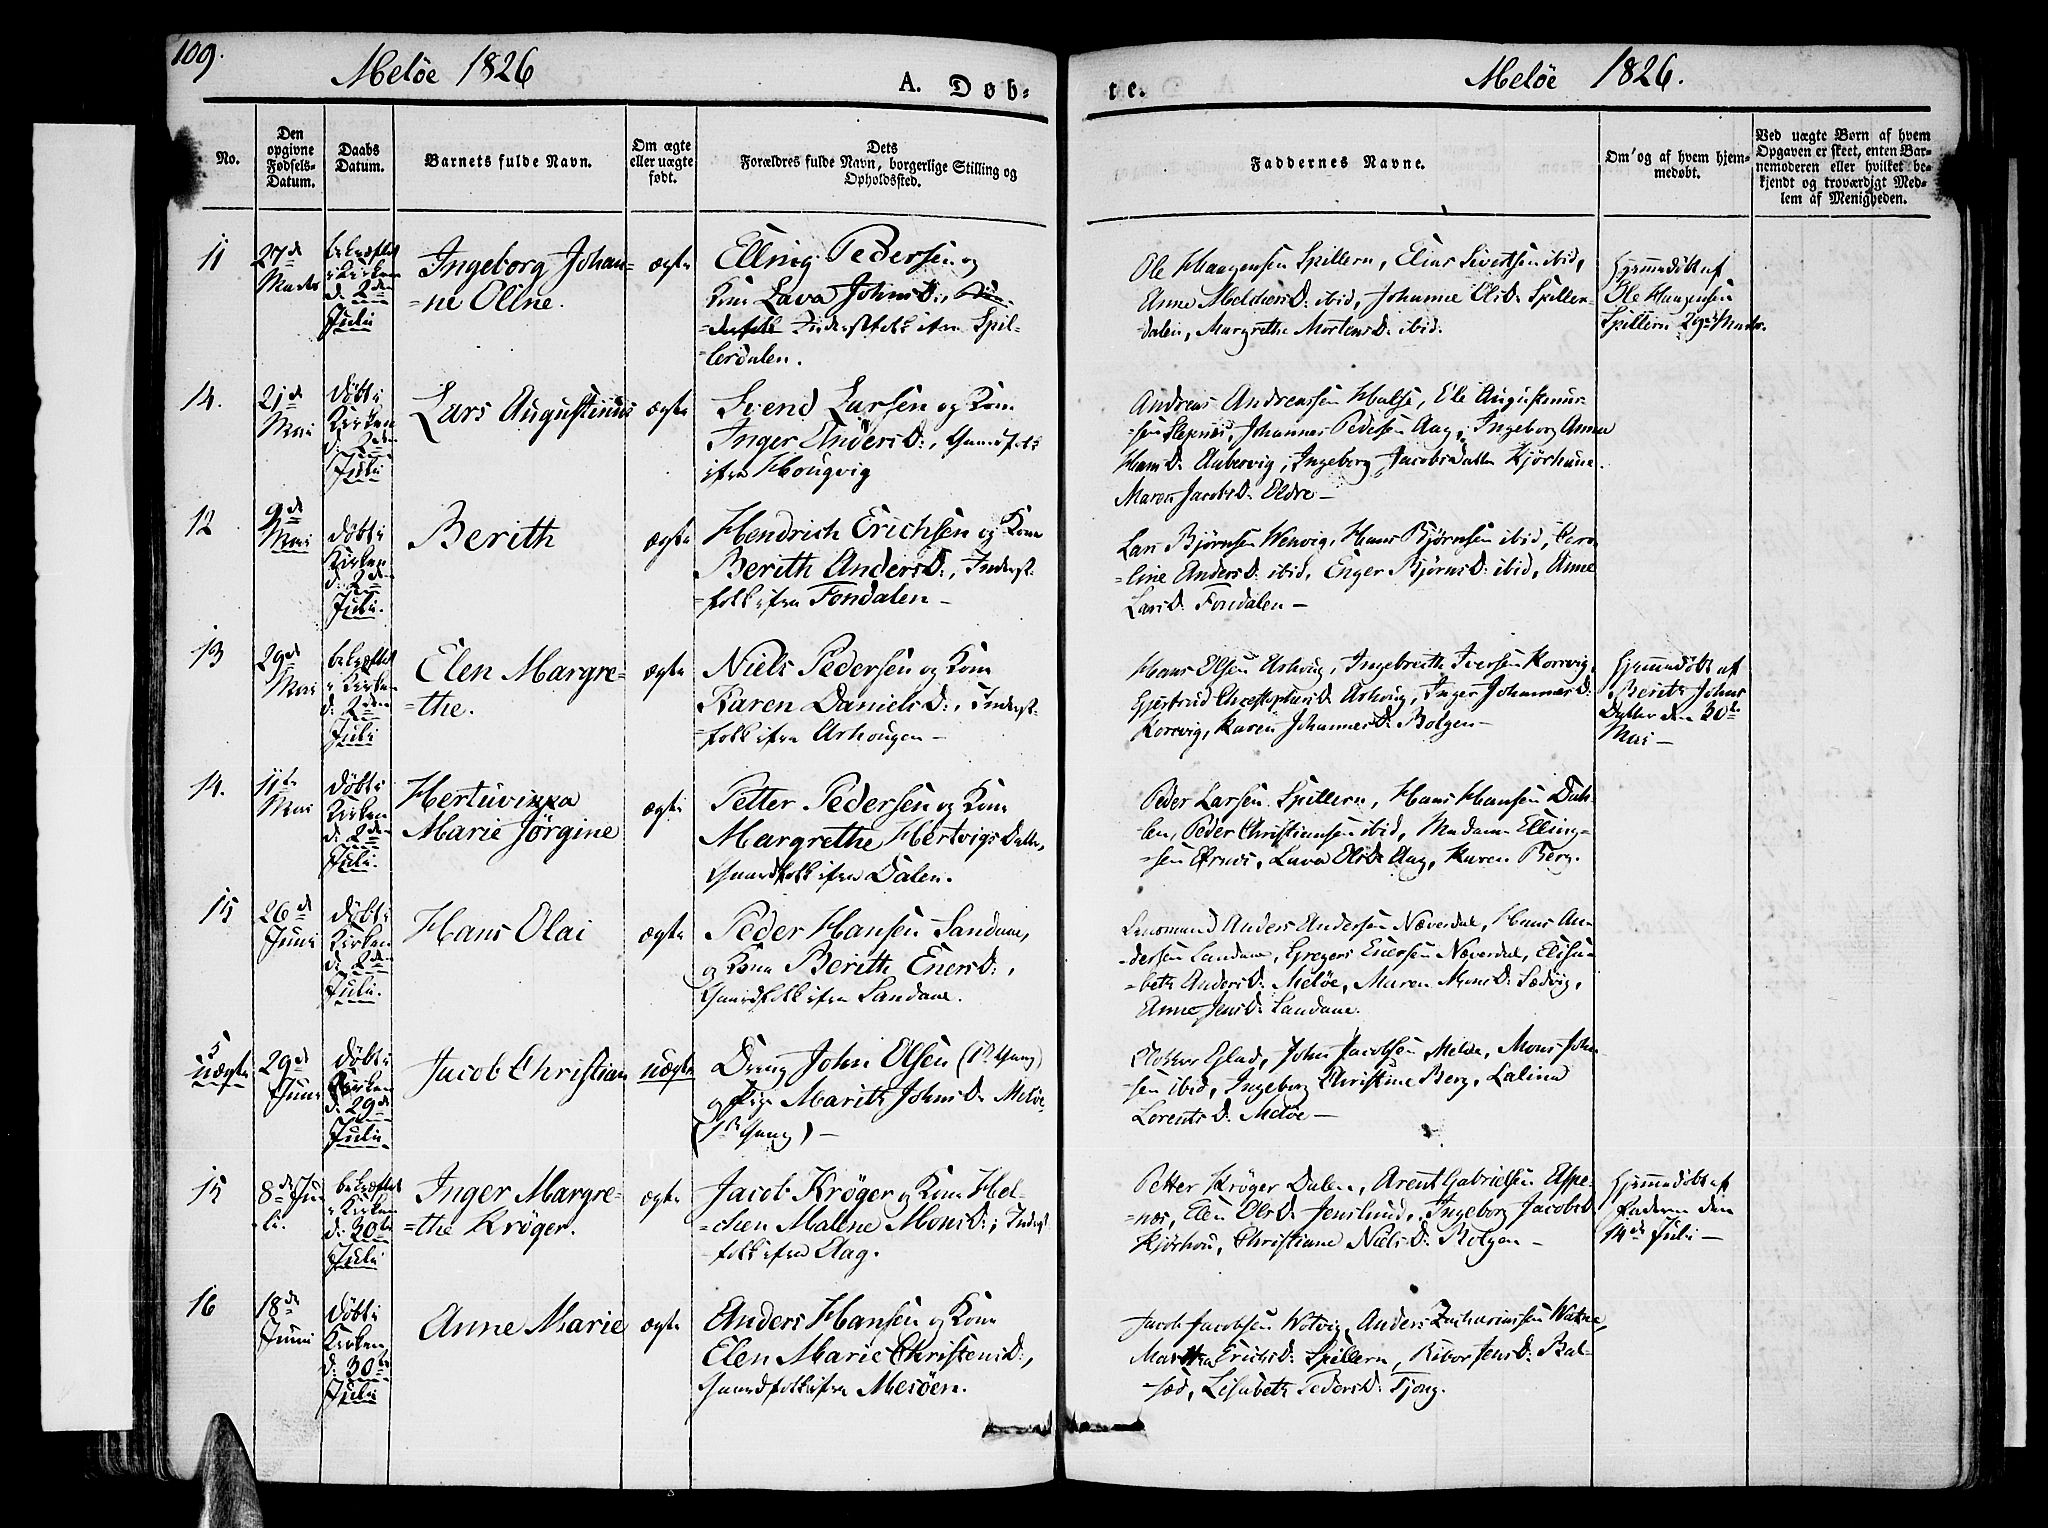 109.
Meløe 1826
A. Døb-
te.
Meløe 1826.
No.
Den opgivne Fødsels-Datum.
Daabs Datum.
Barnets fulde Navn.
Om ægte eller uægte født.
Dets Forældres fulde Navn, borgerlige Stilling og Opholdssted.
Faddernes Navne.
Om og af hvem hjemmedøbt.
Ved uægte Børn af hvem Opgaven er skeet, enten Barnemoderen eller hvilket bekjendt og troværdigt Medlem af Menigheden.
11
27de
Marts
bekræftet
i Kirken
d: 2den
Julii
Ingeborg Johan-
=ne Oline.
ægte
Elling Pedersen og
Kone Lava JohnsD:,
Inderstfolk ifra Spil-
=lerdalen.
Ole Haagensen Spillern, Elias Sivertsen ibid,
Anne MelchiorsD: ibid, Johanne OlsD: Spiller-
dalen, Margrethe MortensD: ibid.
Hjemmedøbt af
Ole Haagensen
Spillern 29de Marts.
14.
21de
Mai
døbt i
Kirken
d: 2den
Julii
Lars Augustinus
ægte
Svend Larsen og Kone
Inger AndersD:, Gaardfolk
ifra Hougvig
Andreas Andreassen Halse, Ole Augustinus-
=sen Stepnes, Johannes Pedersen Aag, Ingeborg Anna
HansD:, Ingeborg Jacobsdatter Kjørhaue.
Maren JacobsD: Eldre —
12
9de
Mai
døbt i
Kirken
d: 2den
Julii.
Berith
ægte
Hendrich Erichsen og Kone
Berith AndersD:, Inderst-
=folk ifra Fondalen —
Lars Bjørnsen Wenvig, Hans Bjørnsen ibid, Caro-
=line AndersD: ibid, Enger BjørnsD: ibid, Anne
LarsD: Fondalen —
13
29de
Mai
bekræftet
i Kirken
d: 2den
Julii
Elen Margre-
=the.
ægte
Niels Pedersen og Kone
Karen DanielsD:, Inderst-
=folk ifra Arhougen —
Hans Olsen Arhoug, Ingebreth Iversen Korsvig,
Gjertrud ChrestophersD: Arhoug, Inger JohannesD:
Korsvig, Karen JohannesD: Bolgen —
Hjemmedøbt af
Berith Johns
Datter den 30te
Mai —
14.
11te
Mai
døbt i
Kirken
d: 2den
Julii.
Hertuvinna
Marie Jørgine
ægte
Petter Pedersen og Kone
Margrethe HertvigsDatter,
Gaardfolk ifra Dalen.
Peder Larsen Spillern, Hans Hansen Dah-
len, Peder Christiansen ibid, Madame Elling-
=sen Ørnes, Lava OlsD: Aag, Karen Berg.
15
26de
Juni
døbt i
Kirken
d: 2den
Julii.
Hans Olai
ægte
Peder Hansen Sandaae,
og Kone Berith EnersD:,
Gaardfolk ifra Sandaae.
Lensmand Anders Andersen Næverdal, Hans An-
=dersen Sandaae, Gregers Enersen Næverdal, Elisa-
=beth AndersD: Meløe, Maren MonsD: Sædvig,
Anne JensD: Sandaae.
5
uægte
29de
Juni
døbt i
Kirken
d: 29de
Julii.
Jacob Christian
uægte
Dreng John Olsen (1te Gang)
og Pige Marith JohnsD: Meløe
(1te Gang) —
Klokker Glad, John Jacobsen Meløe, Mons John-
sen ibid, Ingeborg Christine Berg, Lalina
LorentsD: Meløe —
15
8de Ju-
li.
bekræftet
i Kirken
d: 30te
Julii
Inger Margre-
=the Krøger.
ægte
Jacob Krøger og Kone Hel-
=chen Malene MonsD:, Inderst-
=folk ifra Aag.
Petter Krøger Dalen, Arent Gabrielsen Espe-
=nes, Elen OlsD: Jenslund, Ingeborg JacobsD:
Kjørhou, Christiane NielsD: Bolgen —
Hjemmedøbt af
Faderen den
14de Juli —
16
18de
Juni
døbt i
Kirken
d: 30te
Julii
Anne Marie
ægte
Anders Hansen og Kone
Elen Marie ChristensD:,
Gaardfolk ifra Mesøen.
Jacob Jacobsen Wotvig, Anders Zachariassen Watne,
Martha ErichsD: Spillern, Kiber JensD: Bal-
=sæd, Lisabeth PedersD: Tjong.